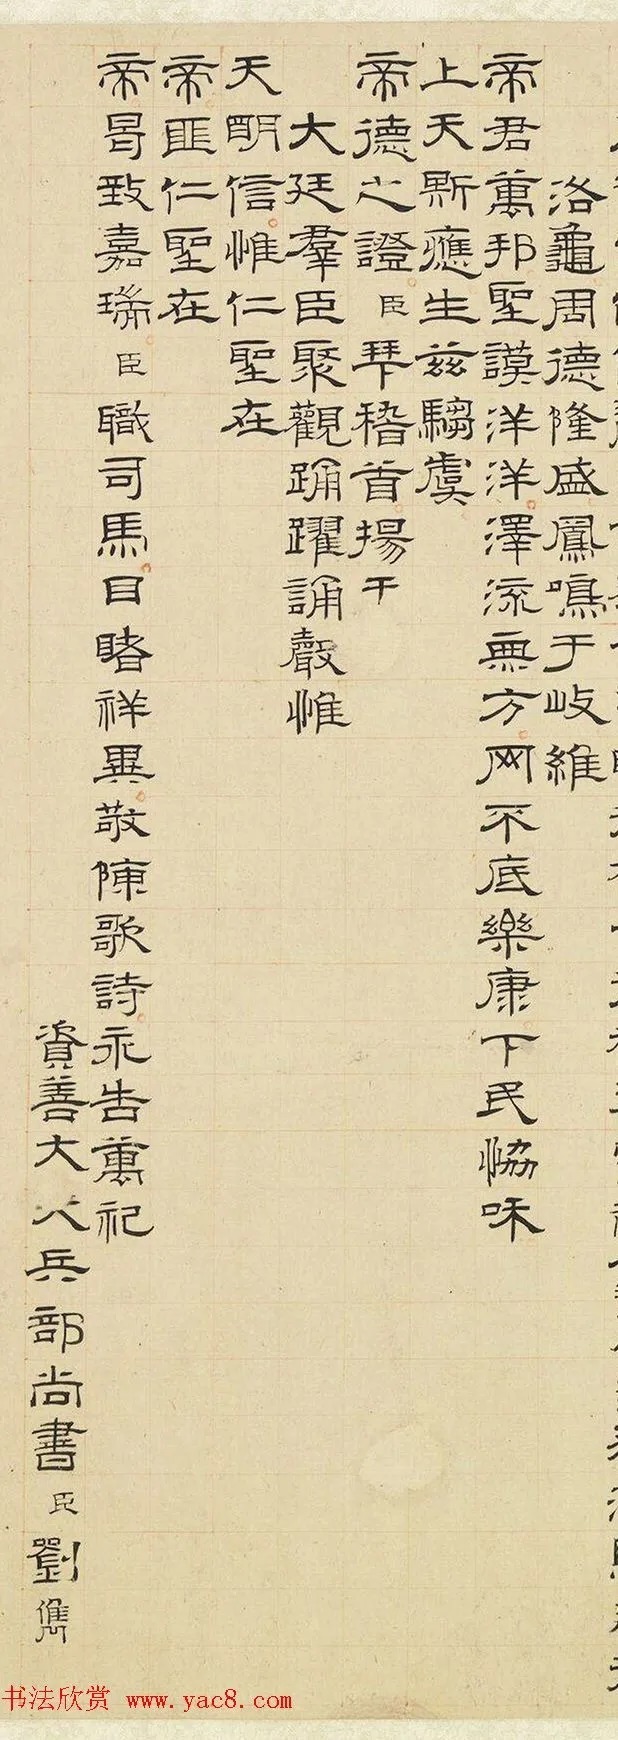 洛龜周德隆盛鳳鳴于岐維
帝君萬邦聖謨洋洋澤流無方网不底樂康下民恊咊
上天斯應生兹騶虞
帝德之證臣拜稽首揚于
大廷羣臣聚觀踊躍誦聲惟
天明信惟仁聖在
帝匪仁聖在
帝曷致嘉瑞臣職司馬目睹祥異敬陳歌詩永告萬祀
資善大人兵部尚書臣劉儁
书法欣赏 www.yac8.com